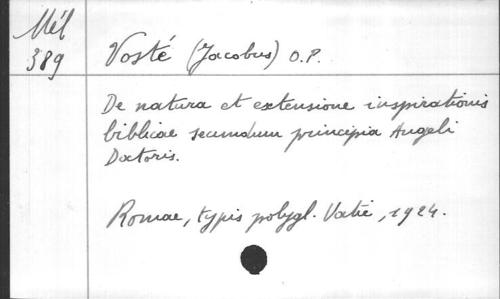 Mél
389
Vosté (Jacobus) O.P.
De natura et extensione inspirationis
biblicae secundum principia Angeli
Doctoris.
Romae, typis polygl. Vatic, 1924.